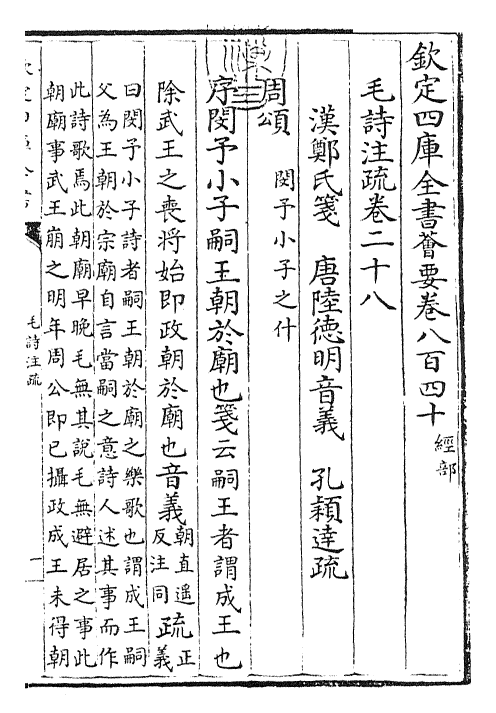 欽定四庫全書薈要卷八百四十 經部
毛詩注疏卷二十八
漢鄭氏箋 唐陸德明音義 孔穎達疏
周頌
閔予小子之什
序閔予小子嗣王朝於廟也箋云嗣王者謂成王也
除武王之喪將始即政朝於廟也音義朝直遥反注同疏正義
曰閔予小子詩者嗣王朝於廟之樂歌也謂成王嗣
父為王朝於宗廟自言當嗣之意詩人述其事而作
此詩歌焉此朝廟早晚毛無其說毛無避居之事此
朝廟事武王崩之明年周公即已攝政成王未得朝
毛詩注疏
一